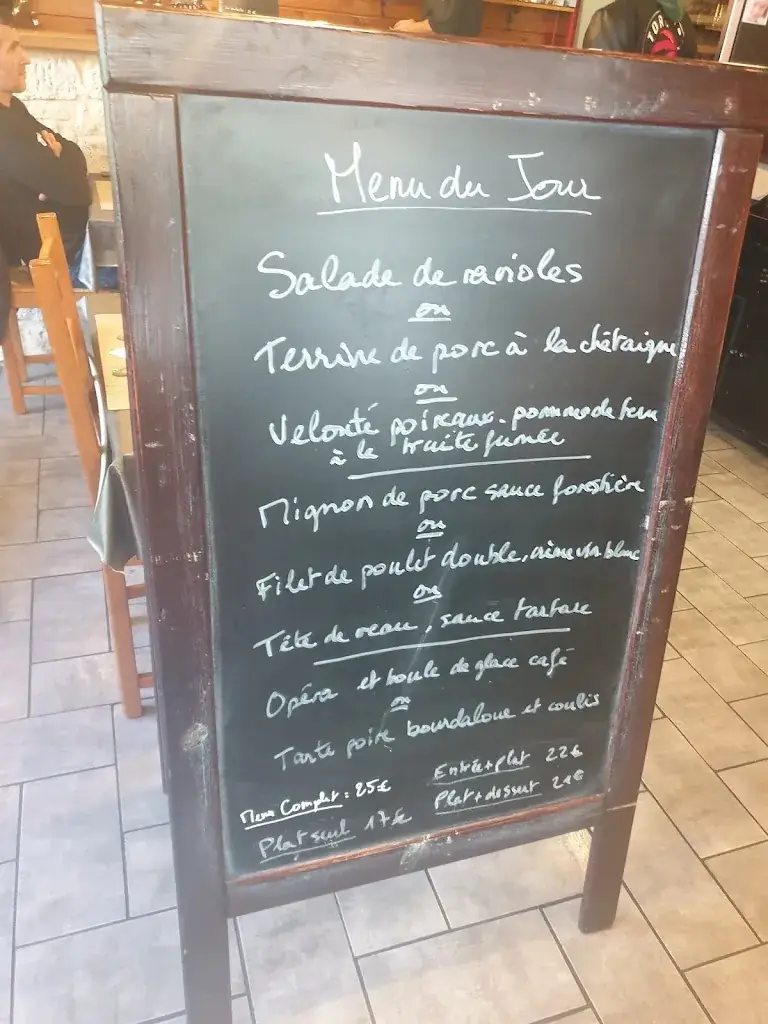 Menu du Jour
Salade de ravioles
ou
Terrine de porc à la châtaigne
ou
Velouté poireaux-pomme de terre
à la truite fumée
Mignon de porc sauce forestière
ou
Filet de poulet double, crème vin blanc
ou
Tête de veau, sauce tartare
Opéra et boule de glace café
ou
Tarte poire bourdaloue et coulis
Menu Complet : 25€
Entrée+plat 22€
Plat seul 17€
Plat+dessert 21€
TOR